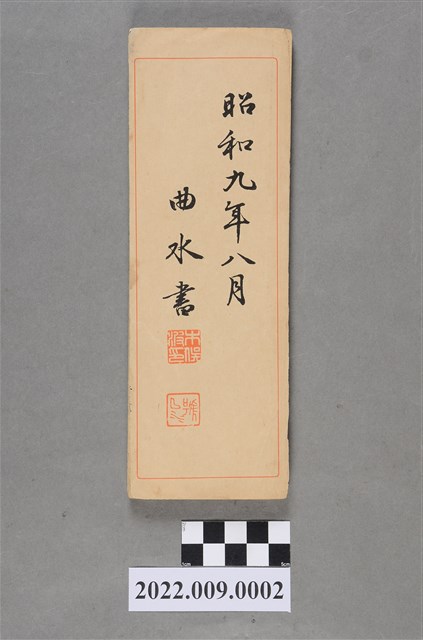 昭和九年八月
曲水書
1cm
5cm
2022.009.0002